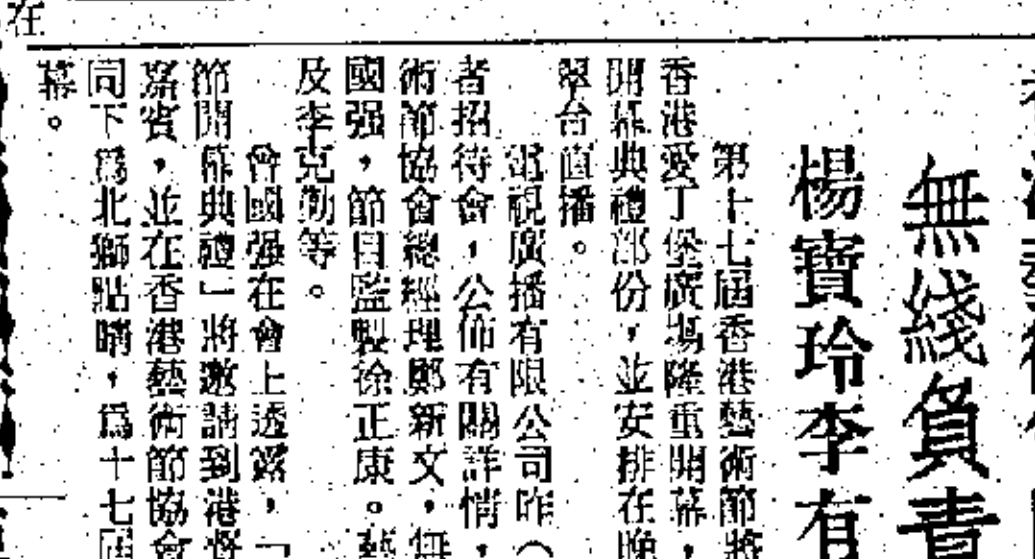 無綫負責
楊寶玲李有
第十七屆香港藝術節將
香港愛丁堡廣場隆重開幕,
開幕典禮部份,並安排在晚
翠台直播。
電視廣播有限公司昨(
者招待會,公佈有關詳情,
術節協會總經理鄭新文,無
國强,節目監製徐正康。藝
及李克勤等。
曾國强在會上透露,「
節開幕典禮」將邀請到港督
嘉賓,並在香港藝術節協會
同下爲北獅點睛,爲十七屆
幕。
在